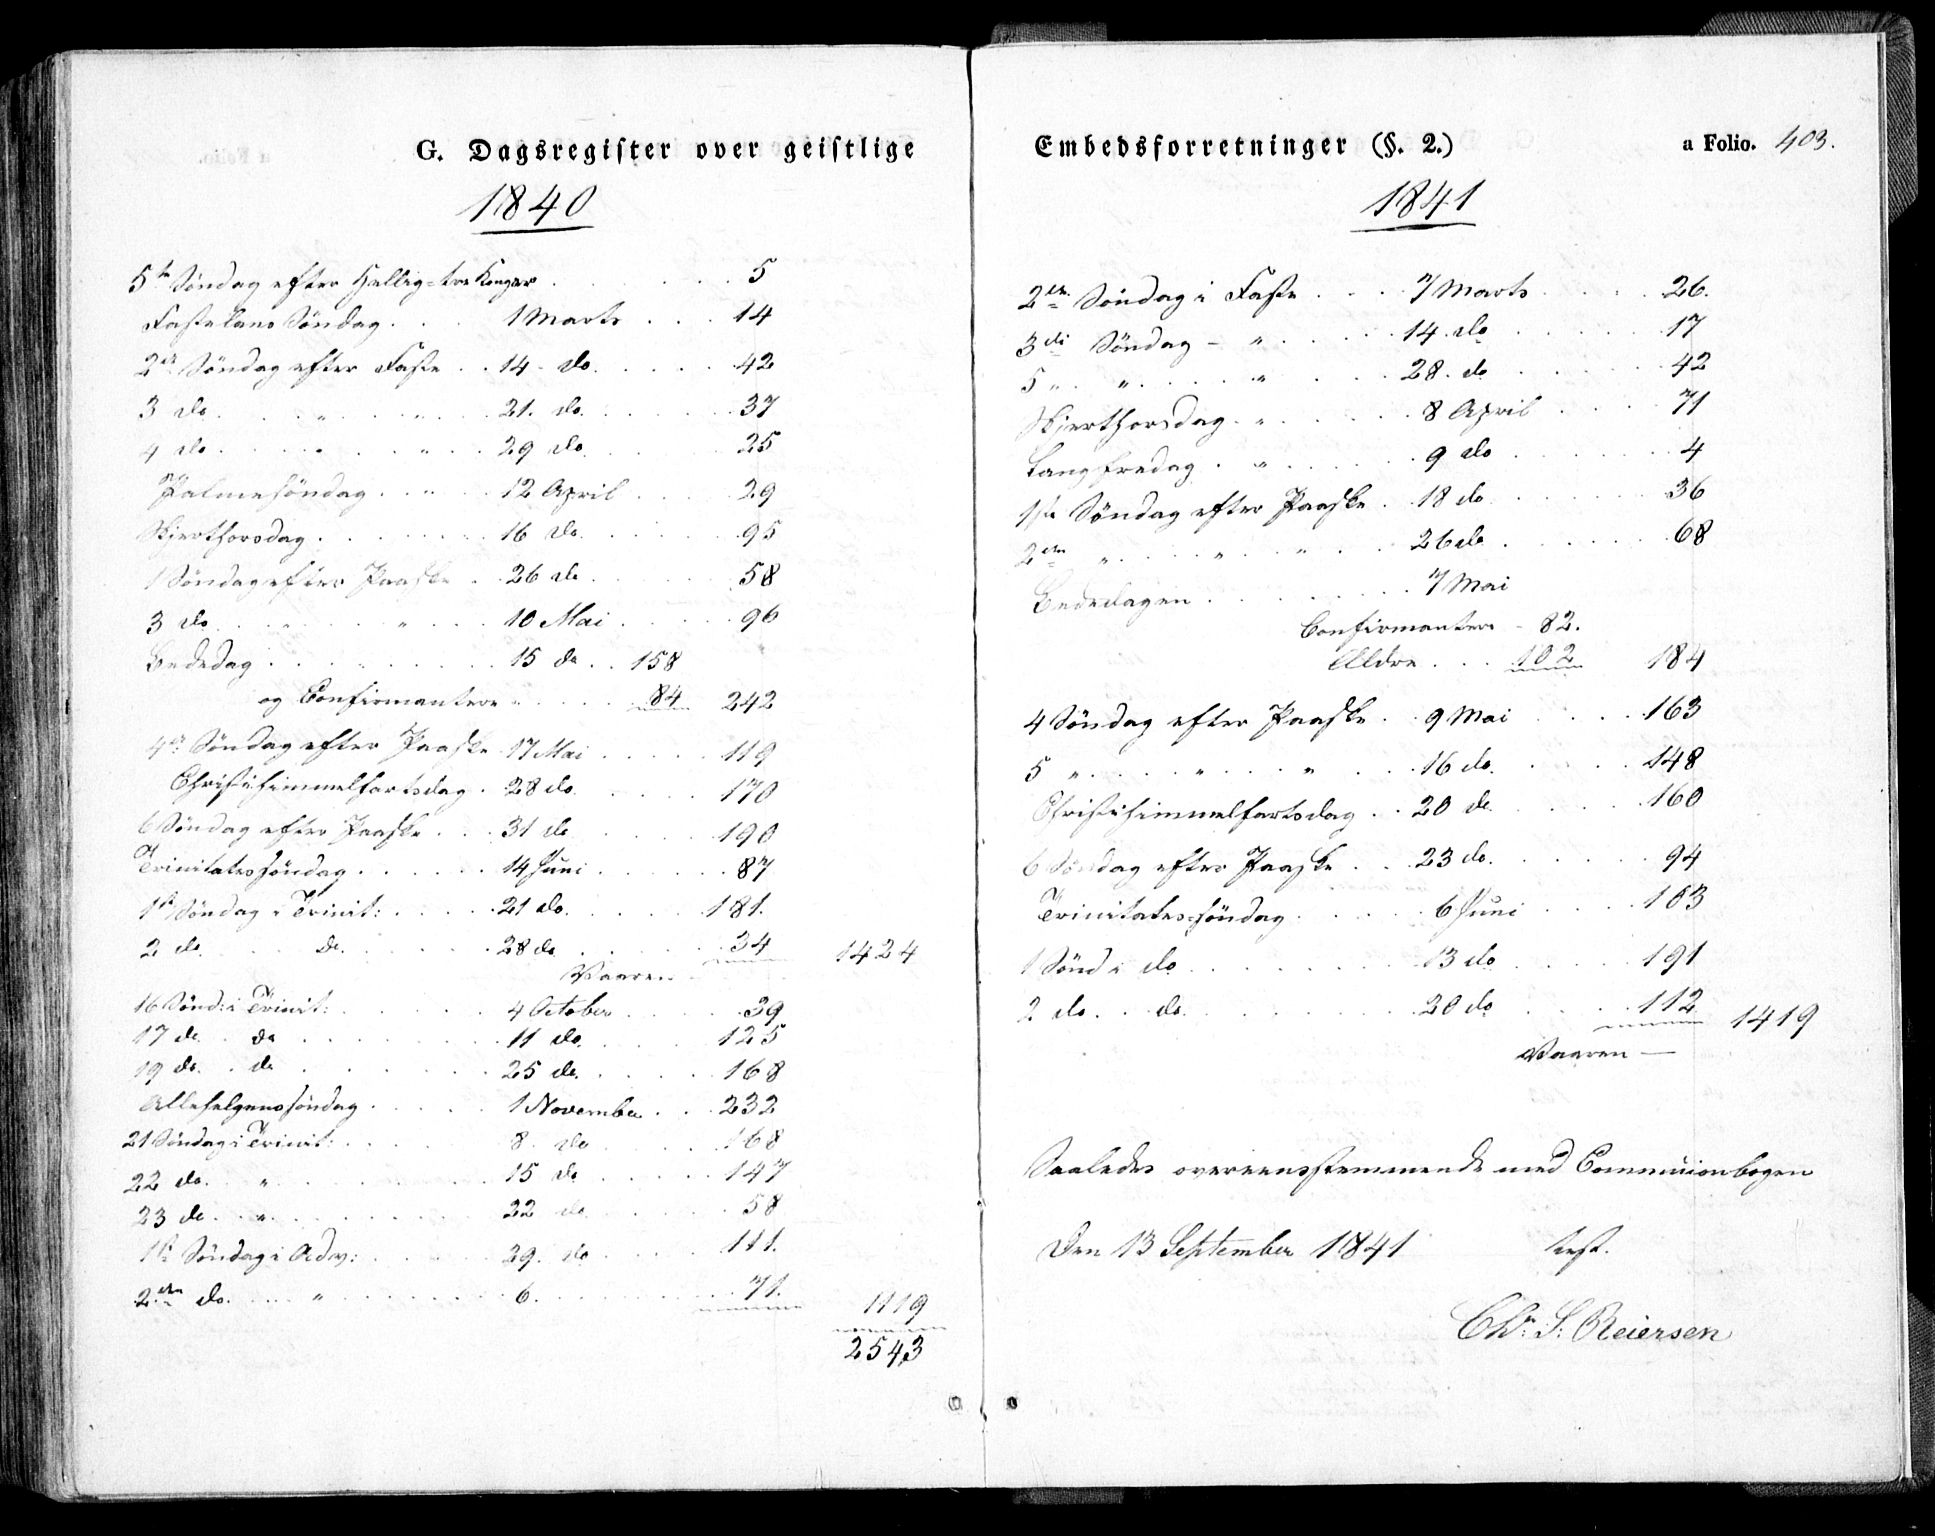 G. Dagsregister over geistlige
1840
5te Søndag efter Hellig-tre Konger . . . 5
Fastelavns Søndag . . . 1 Marts . . . 14
2den Søndag efter Faste . . 14 do . . . 42
3 do . . " . . " . . 21. do . . . 37
4 do . . " . . " . . 29 do . . . 25
Palmesøndag . . " . . 12 April . . . 29
Skjerthorsdag . . . 16 do . . . 95
1 Søndag efter Paaske . . 26 do . . . 58
3 do . . " . . " . . 10 Mai . . . 96
Bededag . . . 15 do . . 158
og Confirmantere " . . . 84 242
4de Søndag efter Paaske . 17 Mai . . . 119
Christihimmelfartsdag . 28 do . . . 170
6 Søndag efter Paaske . . . 31 do . . . 190
Trinitatessøndag . . . 14 Juni . . . 87
1ste Søndag i Trinit: . . . 21 do . . . 181.
2 do . . do . . . 28 do . . . 34 1424
Vaaren –
16 Sønd: i Trinit: . . . 4 October . . . 39
17 do . do . . . 11 do . . . 125
19 do . . do . . . 25 do . . . 168
Allehelgenssøndag . . . 1 November . . . 232
21 Søndag i Trinit: . . . 8. do . . . 168
22 do . " . . . 15 do . . . 147
23 do . . " . . . 22 do . . . 58
1ste Søndag i Adv: . . . 29. do . . . 111.
2den do . . . " . . . 6. . . . 71. 1119
2543
Embedsforretninger (§. 2.) a Folio. 403.
1841
2den Søndag i Faste . . . 7 Marts . . . 26.
3die Søndag – " . . . 14. do . . . 17
5 " . " . . . " . . . 28. do . . . 42
Skjerthorsdag . " . . . 8 April . . . 71
Langfredag . " . . . 9 do . . . 4
1ste Søndag efter Paaske . 18 do . . . 36
2den " . . . " . . " . . 26 do . . . 68
Bededagen . . . 7 Mai
Confirmantere – 82.
Aldre . . . 102 184
4 Søndag efter Paaske . . 9 Mai . . . 163
5 " . . . " . . . " . . . 16 do . . . 148
Christihimmelfartsdag . . 20 do . . . 160
6 Søndag efter Paaske . . . 23 do . . . 94
Trinitates-søndag . . . 6 Juni . . . 103
1 Sønd i do . . . 13 do . . . 191
2 do . . do . . . 20 do . . . 112 1419
Vaaren —
Saaledes overeensstemmende med Communionbogen
Den 13 September 1841 test.
Chr: S: Reiersen